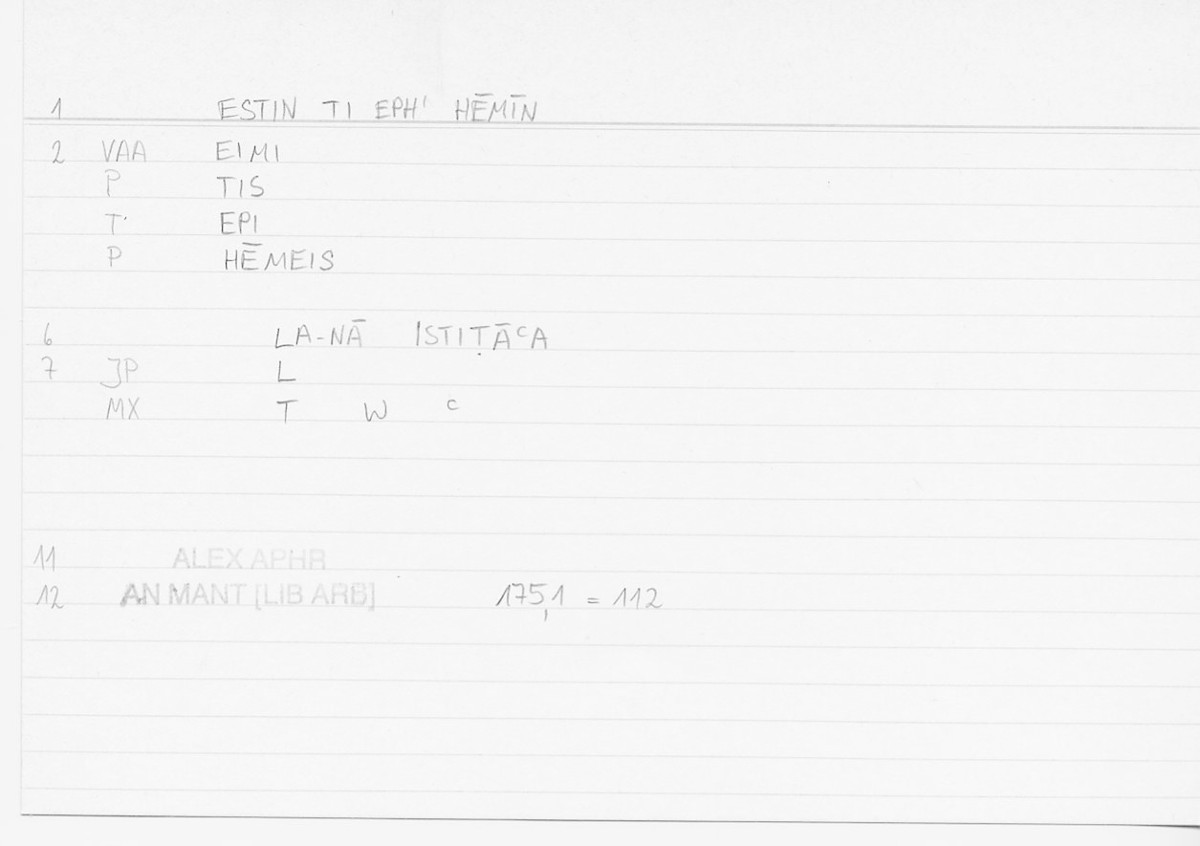 1 ESTIN TI EPH' HĒMĪN
2 VAA EIMI
P TIS
T' EPI
P HĒMEIS
6 LA-NĀ ISTIṬĀCA
7 JP L
MX T W C
11 ALEX APHR
12 AN MANT [LIB ARB] 175,1 = 112